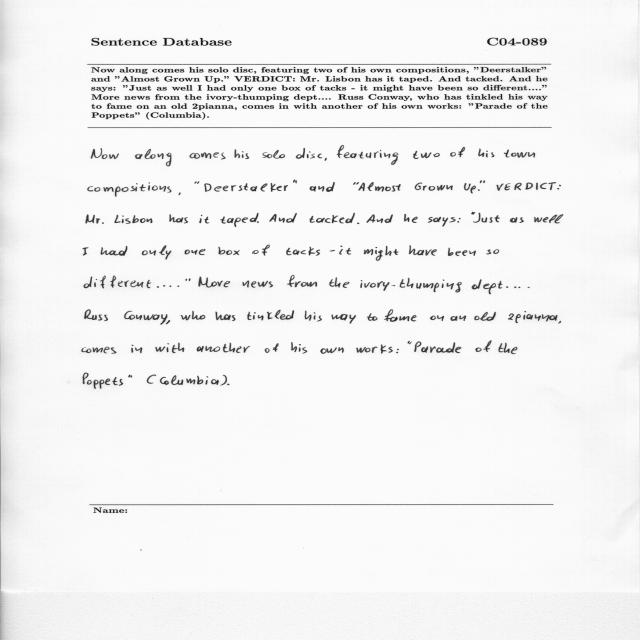 Sentence Database C04-089
Now along comes his solo disc, featuring two of his own compositions, "Deerstalker"
and "Almost Grown Up." VERDICT: Mr. Lisbon has it taped. And tacked. And he
says: "Just as well I had only one box of tacks - it might have been so different...."
More news from the ivory-thumping dept.... Russ Conway, who has tinkled his way
to fame on an old 2pianna, comes in with another of his own works: "Parade of the
Poppets" (Columbia).
Now along comes his solo disc, featuring two of his town
compositions, "Deerstalker" and "Almost Grown Up." VERDICT:
Mr. Lisbon has it taped. And tacked. And he says: "Just as well
I had only one box of tacks - it might have been so
different...." More news from the ivory-thumping dept....
Russ Conway, who has tinkled his way to fame on an old 2pianna,
comes in with another of his own works: "Parade of the
Poppets" (Columbia).
Name: